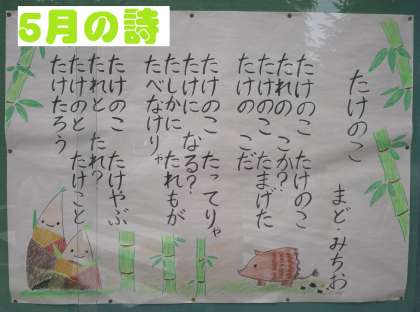 5月の詩
たけのこ
まど・みちお
たけのこ たけのこ
たれの こか?
たけのこ たまげた
たけの こだ
たけのこ たってりゃ
たけに なる?
たしかに たれもが
たべなけりゃ
たけのこ たけやぶ
たれと たれ?
たけのと たけこと
たけたろう